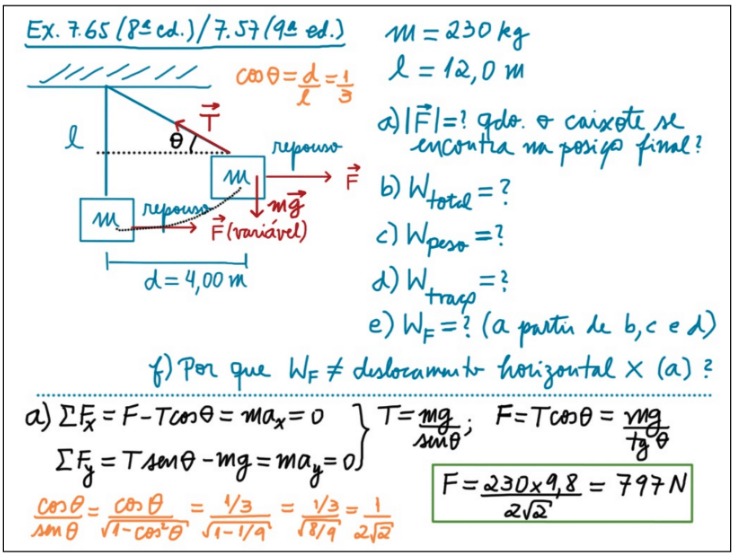 Ex. 7.65 (8ª ed.)/7.57 (9ª ed.)
m = 230 kg
l = 12,0 m
cosθ = d/l = 1/3
T
θ
l
repouso
m
F
mg
m
repouso
F (variável)
d = 4,00 m
a) |F| = ? qdo. o caixote se
encontra na posição final?
b) W_total = ?
c) W_peso = ?
d) W_tração = ?
e) W_F = ? (a partir de b, c e d)
f) Por que W_F ≠ deslocamento horizontal × (a) ?
a) ΣF_x = F - Tcosθ = ma_x = 0
ΣF_y = T senθ - mg = ma_y = 0
T = mg/senθ ; F = Tcosθ = mg/tgθ
cosθ/senθ = cosθ/√(1-cos²θ) = (1/3)/√(1-1/9) = (1/3)/√(8/9) = 1/(2√2)
F = 230x9,8/(2√2) = 797 N